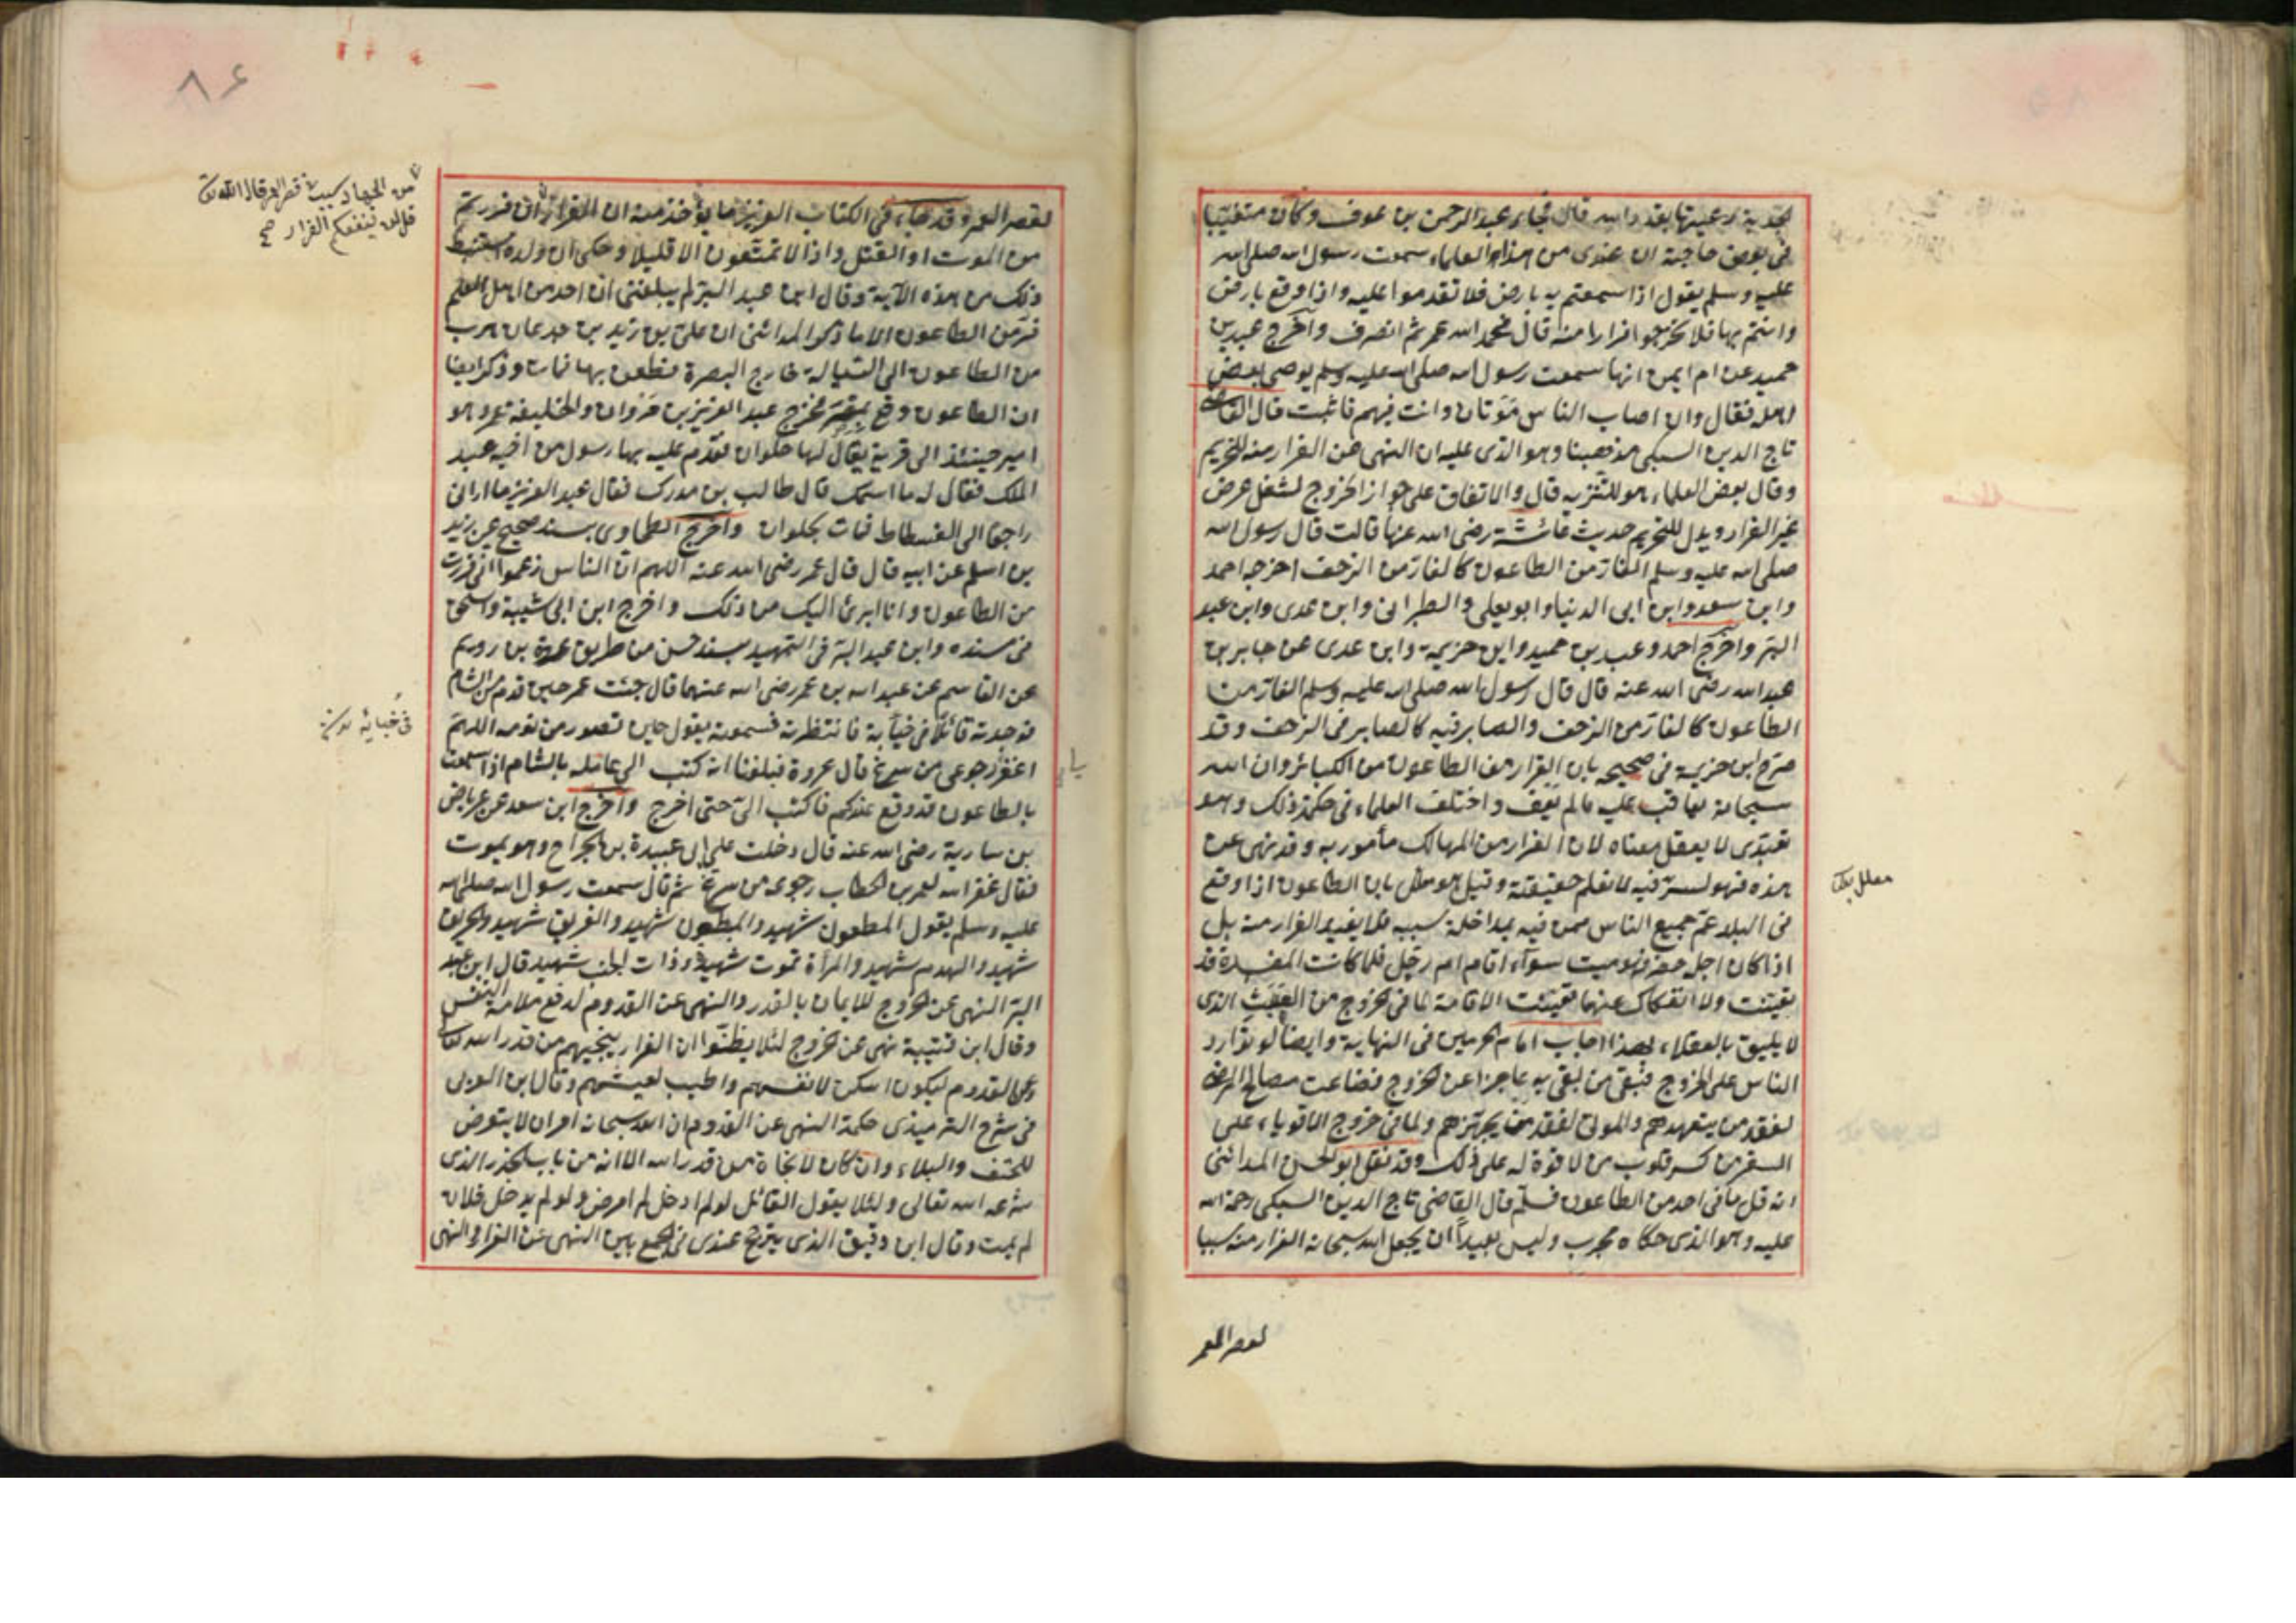 الجدبة رعيتها بقدر الله قال فجاء عبد الرحمن بن عوف وكان متغيبا
فى بعض حاجته ان عندى من هذا العلماء سمعت رسول الله صلى الله
عليه وسلم يقول اذا سمعتم به بارض فلا تقدموا عليه واذا وقع بارض
وانتم بها فلا تخرجوا فرارا منه قال فحمد الله عمر ثم انصرف واخرج عبد بن
حميد عن ام ايمن انها سمعت رسول الله صلى الله عليه وسلم يوصى بعض
اهله فقال وان اصاب الناس موتان وانت فيهم فاثبت قال القاضى
تاج الدين السبكى مذهبنا وهو الذى عليه ان النهى عن الفرار منه للتحريم
وقال بعض العلماء هو للتنزيه قال والاتفاق على جواز الخروج لشغل عرض
غير الفرار ويدل للتحريم حديث عائشة رضى الله عنها قالت قال رسول الله
صلى الله عليه وسلم الفار من الطاعون كالفار من الزحف اخرجه احمد
وابن سعد وابن ابى الدنيا وابو يعلى والطبرانى وابن عدى وابن عبد
البر واخرج احمد وعبد بن حميد وابن خزيمة وابن عدى عن جابر بن
عبد الله رضى الله عنه قال قال رسول الله صلى الله عليه وسلم الفار من
الطاعون كالفار من الزحف والصابر فيه كالصابر فى الزحف وقد
صرح ابن خزيمة فى صحيحه بان الفرار من الطاعون من الكبائر وان الله
سبحانه يعاقب عليه مالم يعف واختلف العلماء فى حكمة ذلك وهو
تعبدى لا يعقل معناه لان الفرار من المهالك مأمور به وقد نهى عن
هذه فهو لسر فيه لا نعلم حقيقته وقيل هو معلل بان الطاعون اذا وقع
معلل بكذا
فى البلد عم جميع الناس ممن فيه بمداخلة سببه فلا يفيد الفرار منه بل
اذا كان اجله حضر فهو ميت سوآء اقام ام رحل فلما كانت المفسدة قد
تعينت ولا انفكاك عنها تعينت الاقامة لما فى الخروج من العبث الذى
لا يليق بالعقلاء بهذا اجاب امام الحرمين فى النهاية وايضا لو توارد
الناس على الخروج فبقى من بقى به عاجزا عن الخروج فضاعت مصالح المرضى
لفقد من يتعهدهم والموتى لفقد من يجهزهم ولما فى خروج الاقوياء على
السفر من كسر قلوب من لا قوة له على ذلك وقد نقل ابو الحسن المدائنى
انه قل ما فر احد من الطاعون فسلم قال القاضى تاج الدين السبكى رحمة الله
عليه وهو الذى حكاه مجرب وليس بعيداً ان يجعل الله سبحانه الفرار منه سببا
لقصر العمر
٨٦
لقصر العمر وقد جاء فى الكتاب العزيز ما يؤخذ منه ان الفرار ان فررتم
من الجهاد سبب فى قصر العمر قال الله تعالى
قل لن ينفعكم الفرار صح
من الموت او القتل واذا لا تمتعون الا قليلا وحكى ان والده استنبط
ذلك من هذه الآية وقال ابن عبد البر لم يبلغنى ان احد من اهل العلم
فر من الطاعون الا ما ذكر المدائنى ان على بن زيد بن جدعان هرب
من الطاعون الى السيالة خارج البصرة فطعن بها فمات وذكر ايضا
ان الطاعون وقع بمصر فخرج عبد العزيز بن مروان والخليفة عمر وهو
امير حينئذ الى قرية يقال لها حلوان فقدم عليه بها رسول من اخيه عبد
الملك فقال له ما اسمك قال طالب بن مدرك فقال عبد العزيز ما ارانى
راجعا الى الفسطاط فمات بحلوان واخرج الطحاوى بسند صحيح عن زيد
بن اسلم عن ابيه قال قال عمر رضى الله عنه اللهم ان الناس زعموا انى فررت
من الطاعون وانا ابرئ اليك من ذلك واخرج ابن ابى شيبة واسحق
فى مسنده وابن عبد البر فى التمهيد بسند حسن من طريق عروة بن رويم
عن القاسم عن عبد الله بن عمر رضى الله عنهما قال جئت عمر حين قدم من الشام
فوجدته قائلا فى خبائه فانتظرته فسمعته يقول حين تضور من نومه اللهم
فى خبائه
اغفر رجوعى من سرغ قال عروة فبلغنا انه كتب الى عامله بالشام اذا سمعت
بالطاعون قد وقع عندكم فاكتب الى حتى اخرج واخرج ابن سعد عن عرباض
بن سارية رضى الله عنه قال دخلت على ابى عبيدة بن الجراح وهو يموت
فقال غفر الله لعمر بن الخطاب رجوعه من سرغ ثم قال سمعت رسول الله صلى الله
عليه وسلم يقول المطعون شهيد والمبطون شهيد والغريق شهيد والحريق
شهيد والهدم شهيد والمرأة تموت شهيد وذات الجنب شهيد قال ابن عبد
البر النهى عن الخروج للايمان بالقدر والنهى عن القدوم لدفع ملامة النفس
وقال ابن قتيبة نهى عن الخروج لئلا يظنوا ان الفرار ينجيهم من قدر الله تعالى
وعن القدوم ليكون اسكن لانفسهم واطيب لعيشهم وقال ابن العربى
فى شرح الترميذى حكمة النهى عن القدوم ان الله سبحانه امر ان لا يتعرض
للحتف والبلاء وان كان لا نجاة من قدر الله الا انه من باب الحذر الذى
شرعه الله تعالى ولئلا يقول القائل لو لم ادخل لم امرض ولو لم يدخل فلان
لم يمت وقال ابن دقيق الذى يترجح عندى فى الجمع بين النهى عن الفرار والنهى